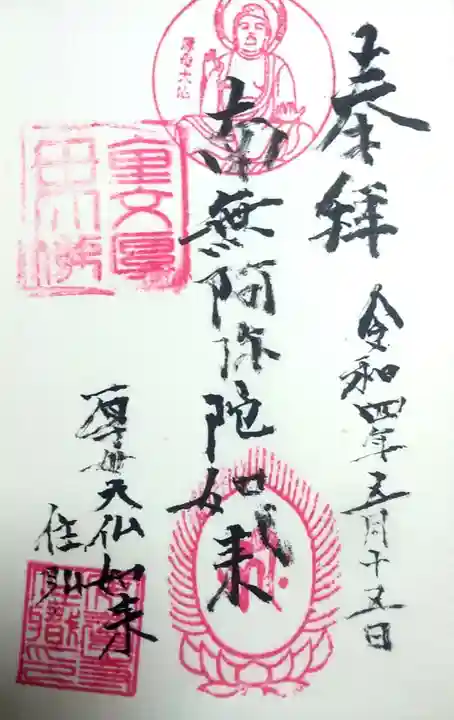 奉拝
令和四年五月十五日
南無阿弥陀如来
厚母大仏如来
住職
厚母大仏